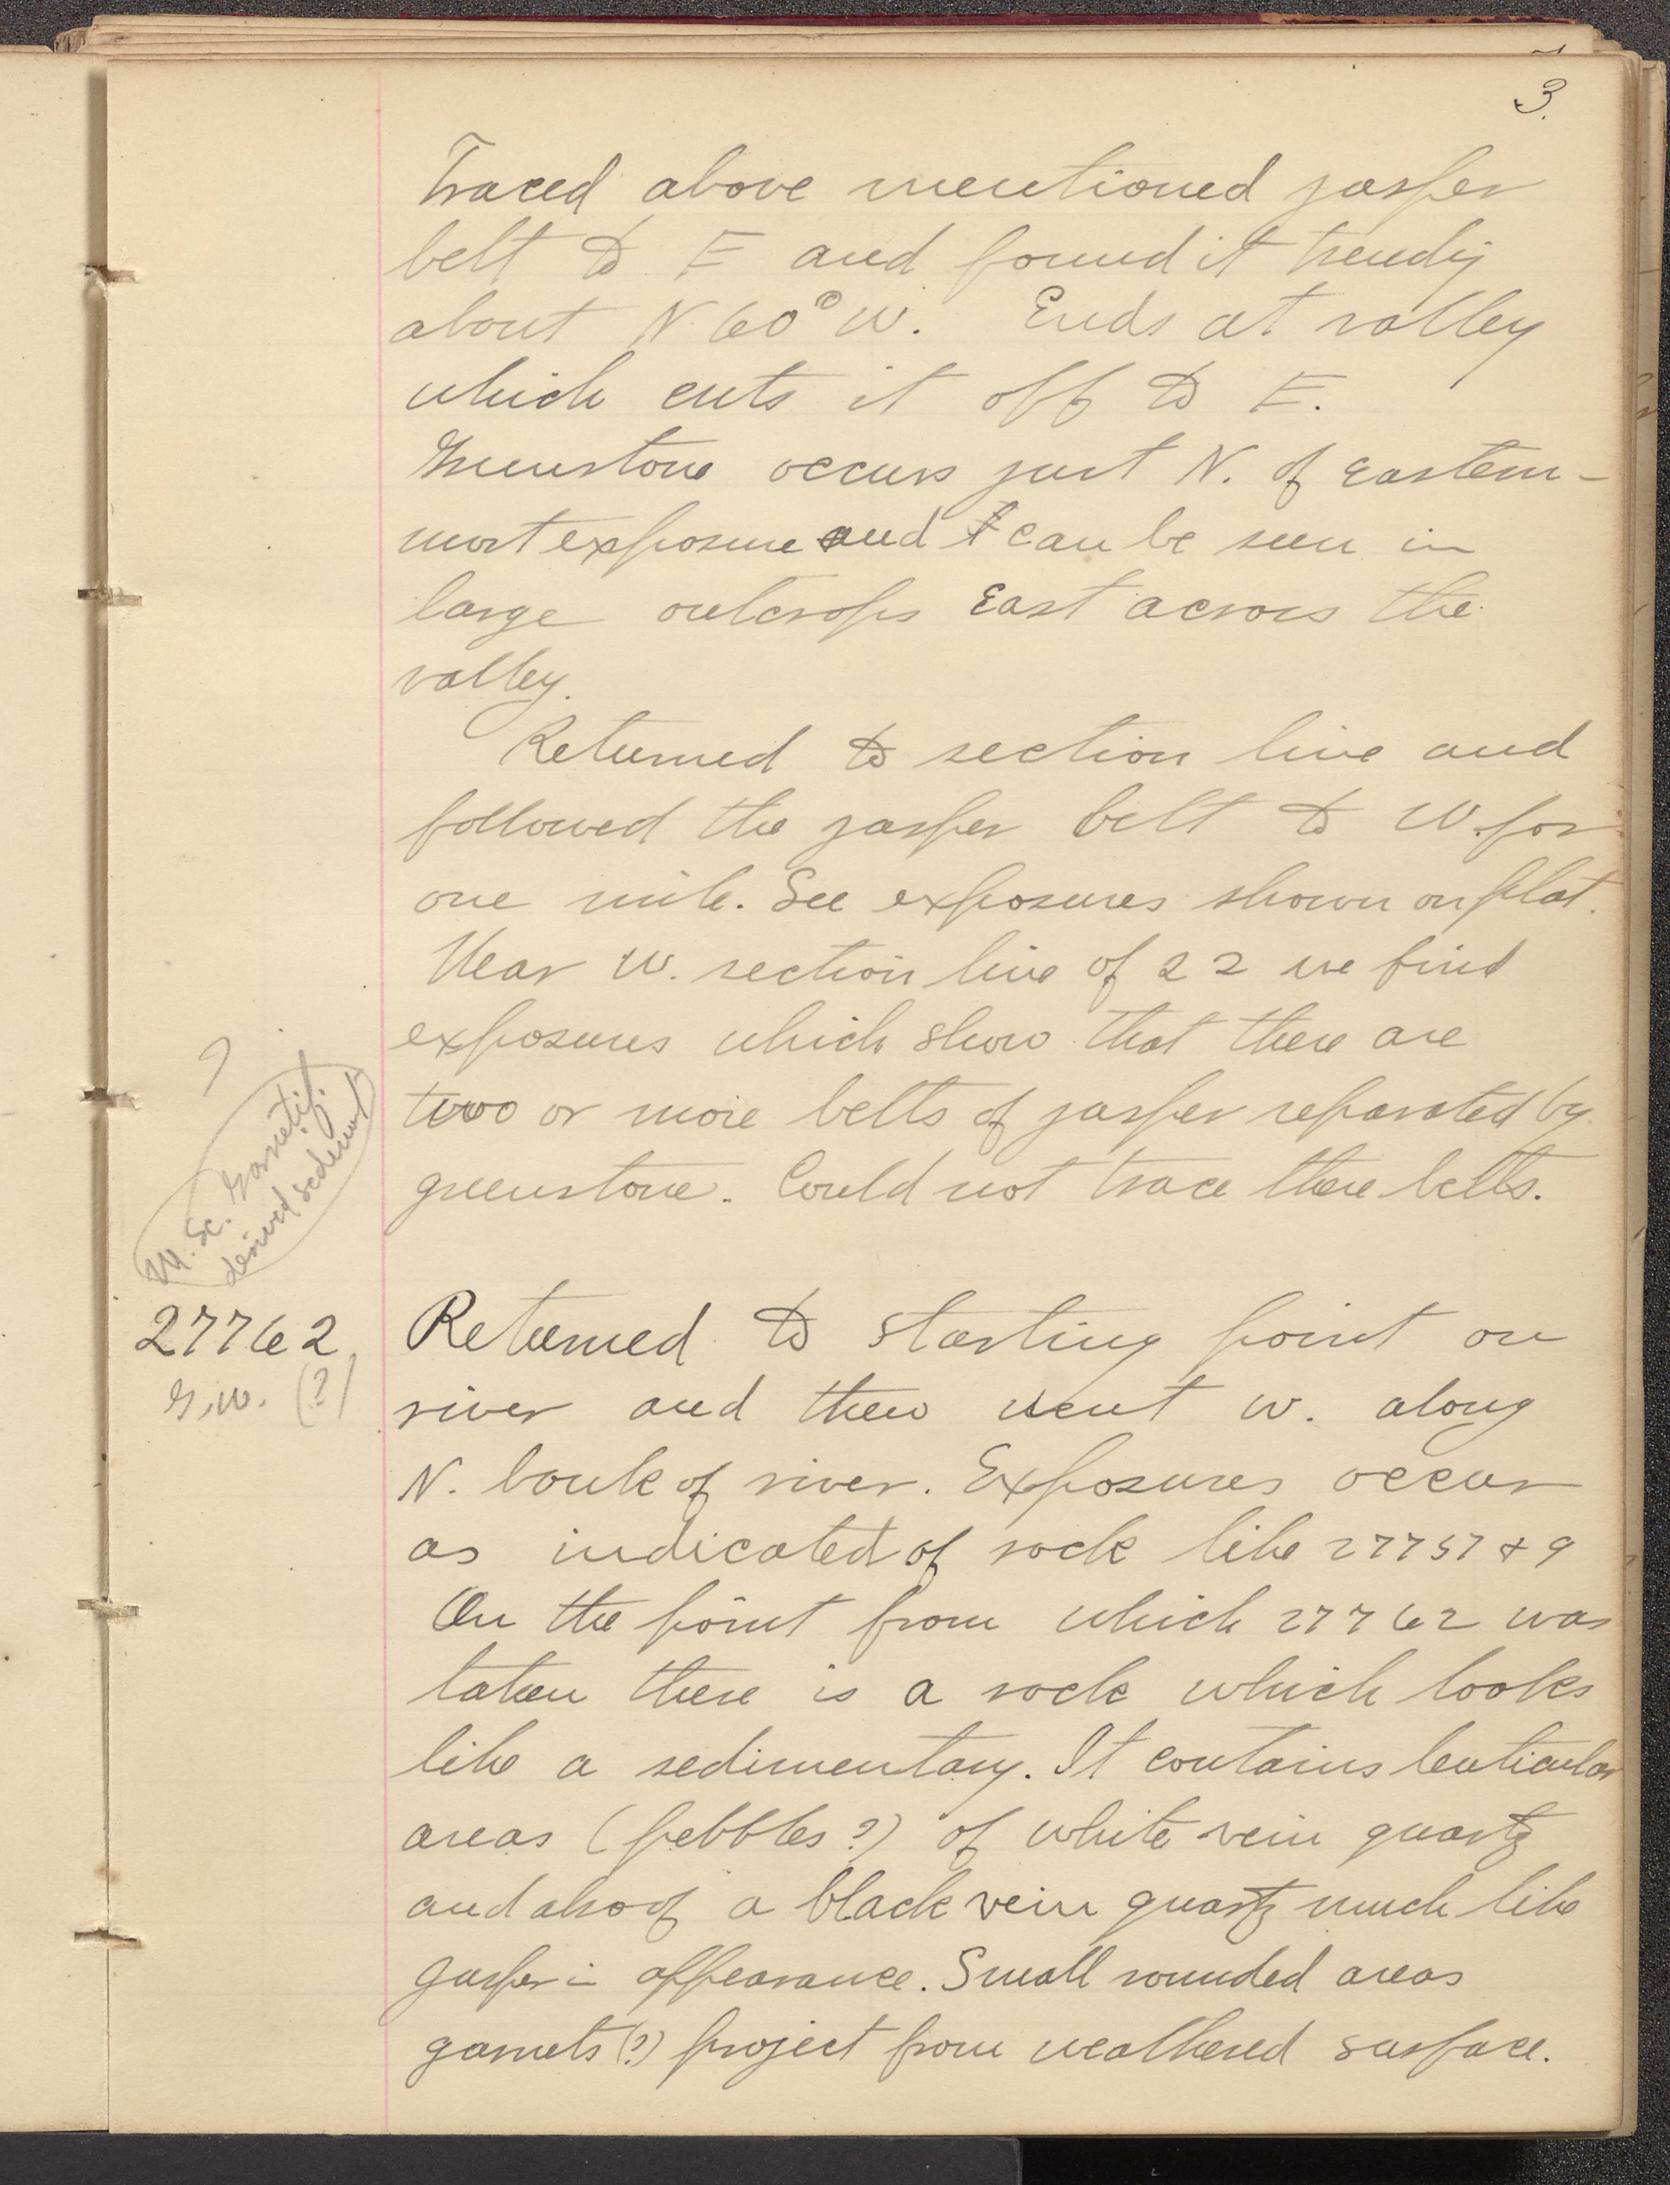 3.
Traced above mentioned jasper
belt to E and found it trendg
about N 60° W. Ends at valley
which cuts it off to E.
Greenstone occurs just N. of eastern-
most exposure and can be seen in
large outcrops East across the
valley.
Returned to section line and
followed the jasper belt to W. for
one mile. See exposures shown on plat.
Near W. section line of 22 we find
exposures which show that there are
two or more belts of jasper separated by
greenstone. Could not trace these belts.
?
M. Sc. Garnetif.
derived sediment
27762
G.W. (?)
Returned to starting point on
river and then went W. along
N. bank of river. Exposures occur
as indicated of rock like 27757 & 9
On the point from which 27762 was
taken there is a rock which looks
like a sedimentary. It contains lenticular
areas (pebbles?) of white vein quartz
and also of a black vein quartz much like
jasper in appearance. Small rounded areas
garnets (?) project from weathered surface.